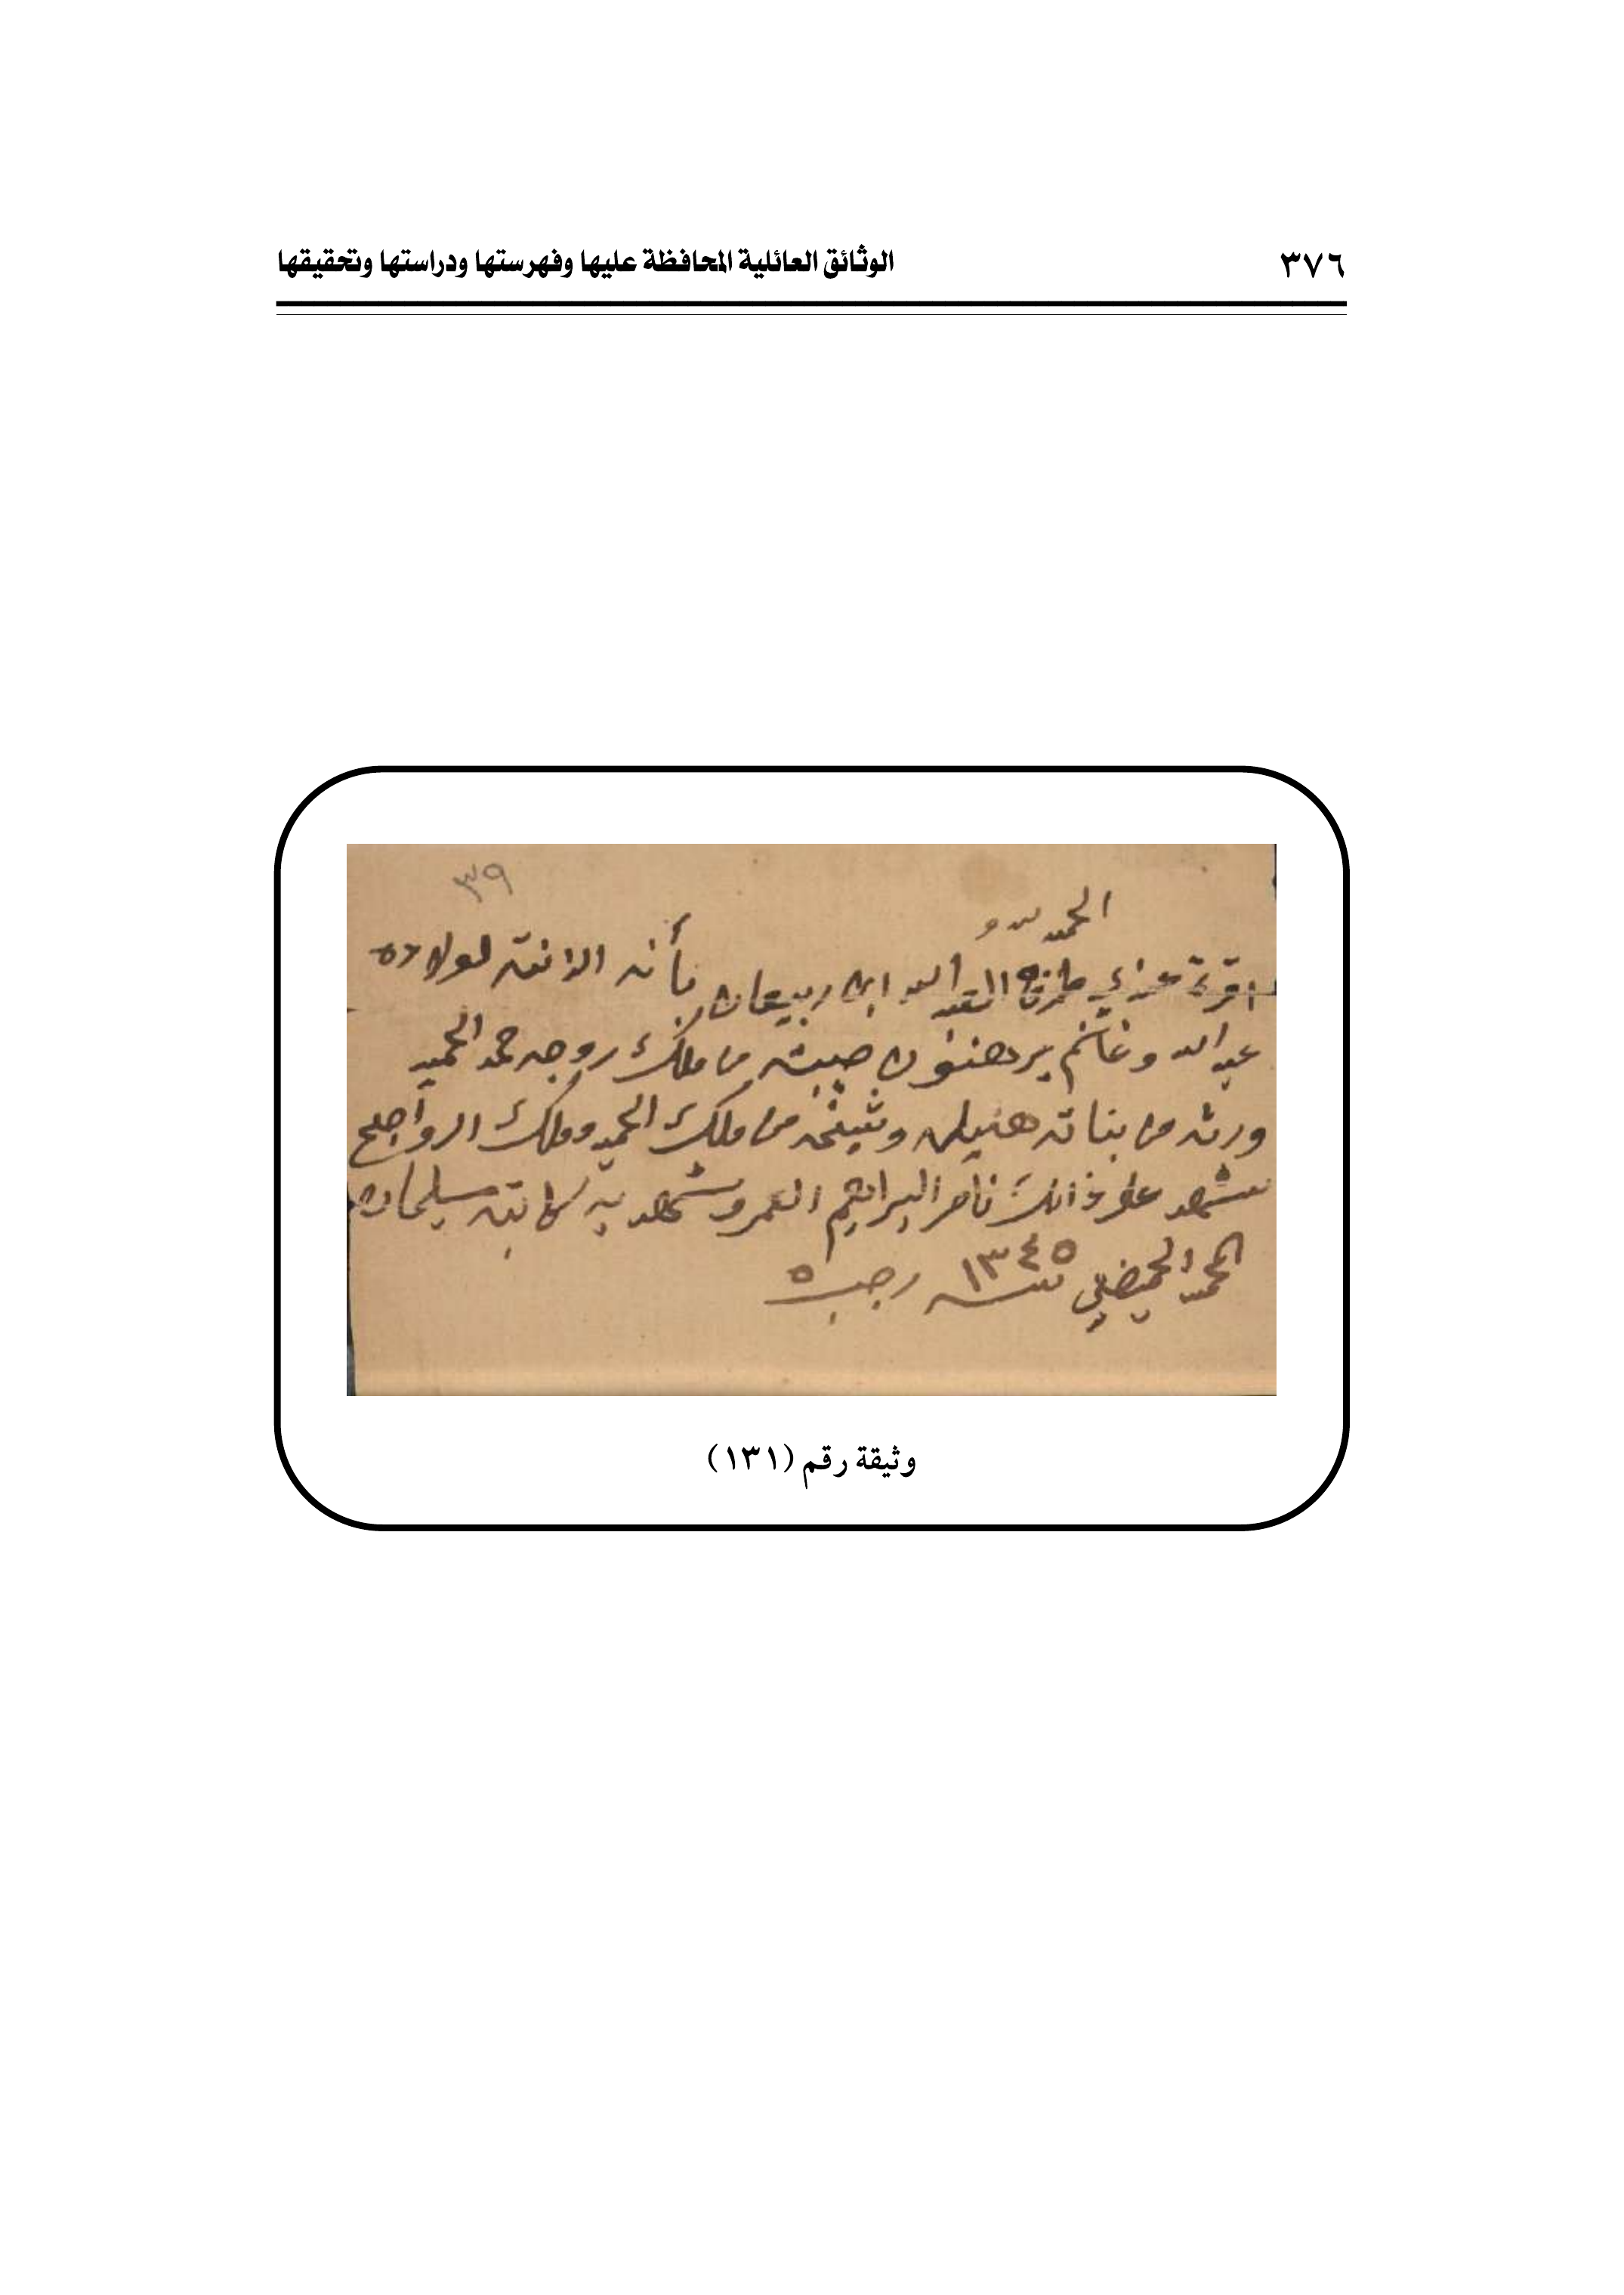 ٣٧٦ الوثائق العائلية المحافظة عليها وفهرستها ودراستها وتحقيقها
٣٩
الحمد لله و
اقرة مزنه العبد الله ابن ربيعان بأنه اذانة لولاده
عبد الله وغانم يرهنون صيبته من ملك زوجه حمد الحميد
ورثه من بناته هيله وشيخه من ملك الحميد وملك الرواجح
شهد على ذالك ناصر البراهيم العمر وشهد به كاتبه سليمان
الحمد الحميضي سنه ١٣٤٥ رجب ٥
وثيقة رقم (١٣١)